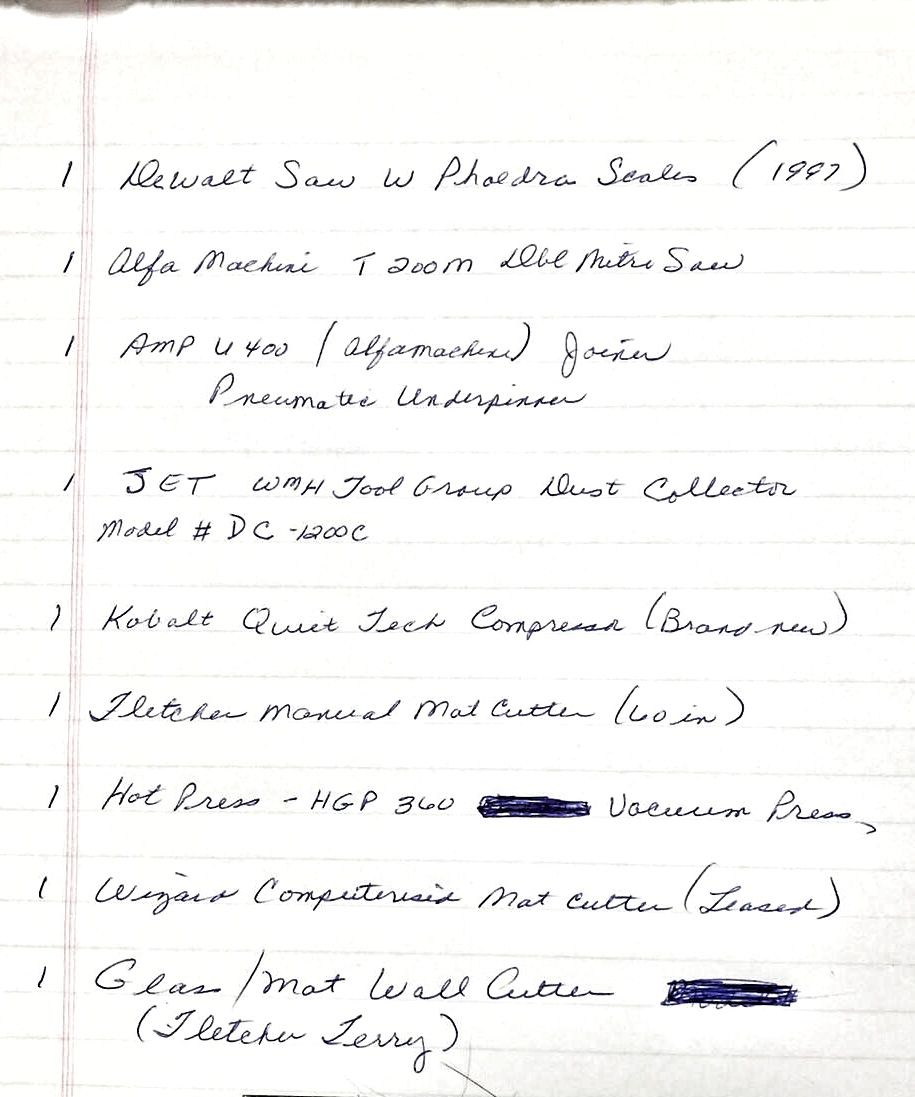 1 Dewalt Saw W Phaedra Scales (1997)
1 Alfa Machine T 200M Dbl Mitre Saw
1 AMP U 400 (Alfamachine) Joiner
Pneumatic Underpinner
1 JET WMH Tool Group Dust Collector
Model # DC-1200C
1 Kobalt Quiet Tech Compressor (Brand new)
1 Fletcher Manual Mat Cutter (60 in)
1 Hot Press - HGP 360 Vacuum Press,
1 Wizard Computerised Mat Cutter (Leased)
1 Glass/Mat Wall Cutter
(Fletcher Terry)